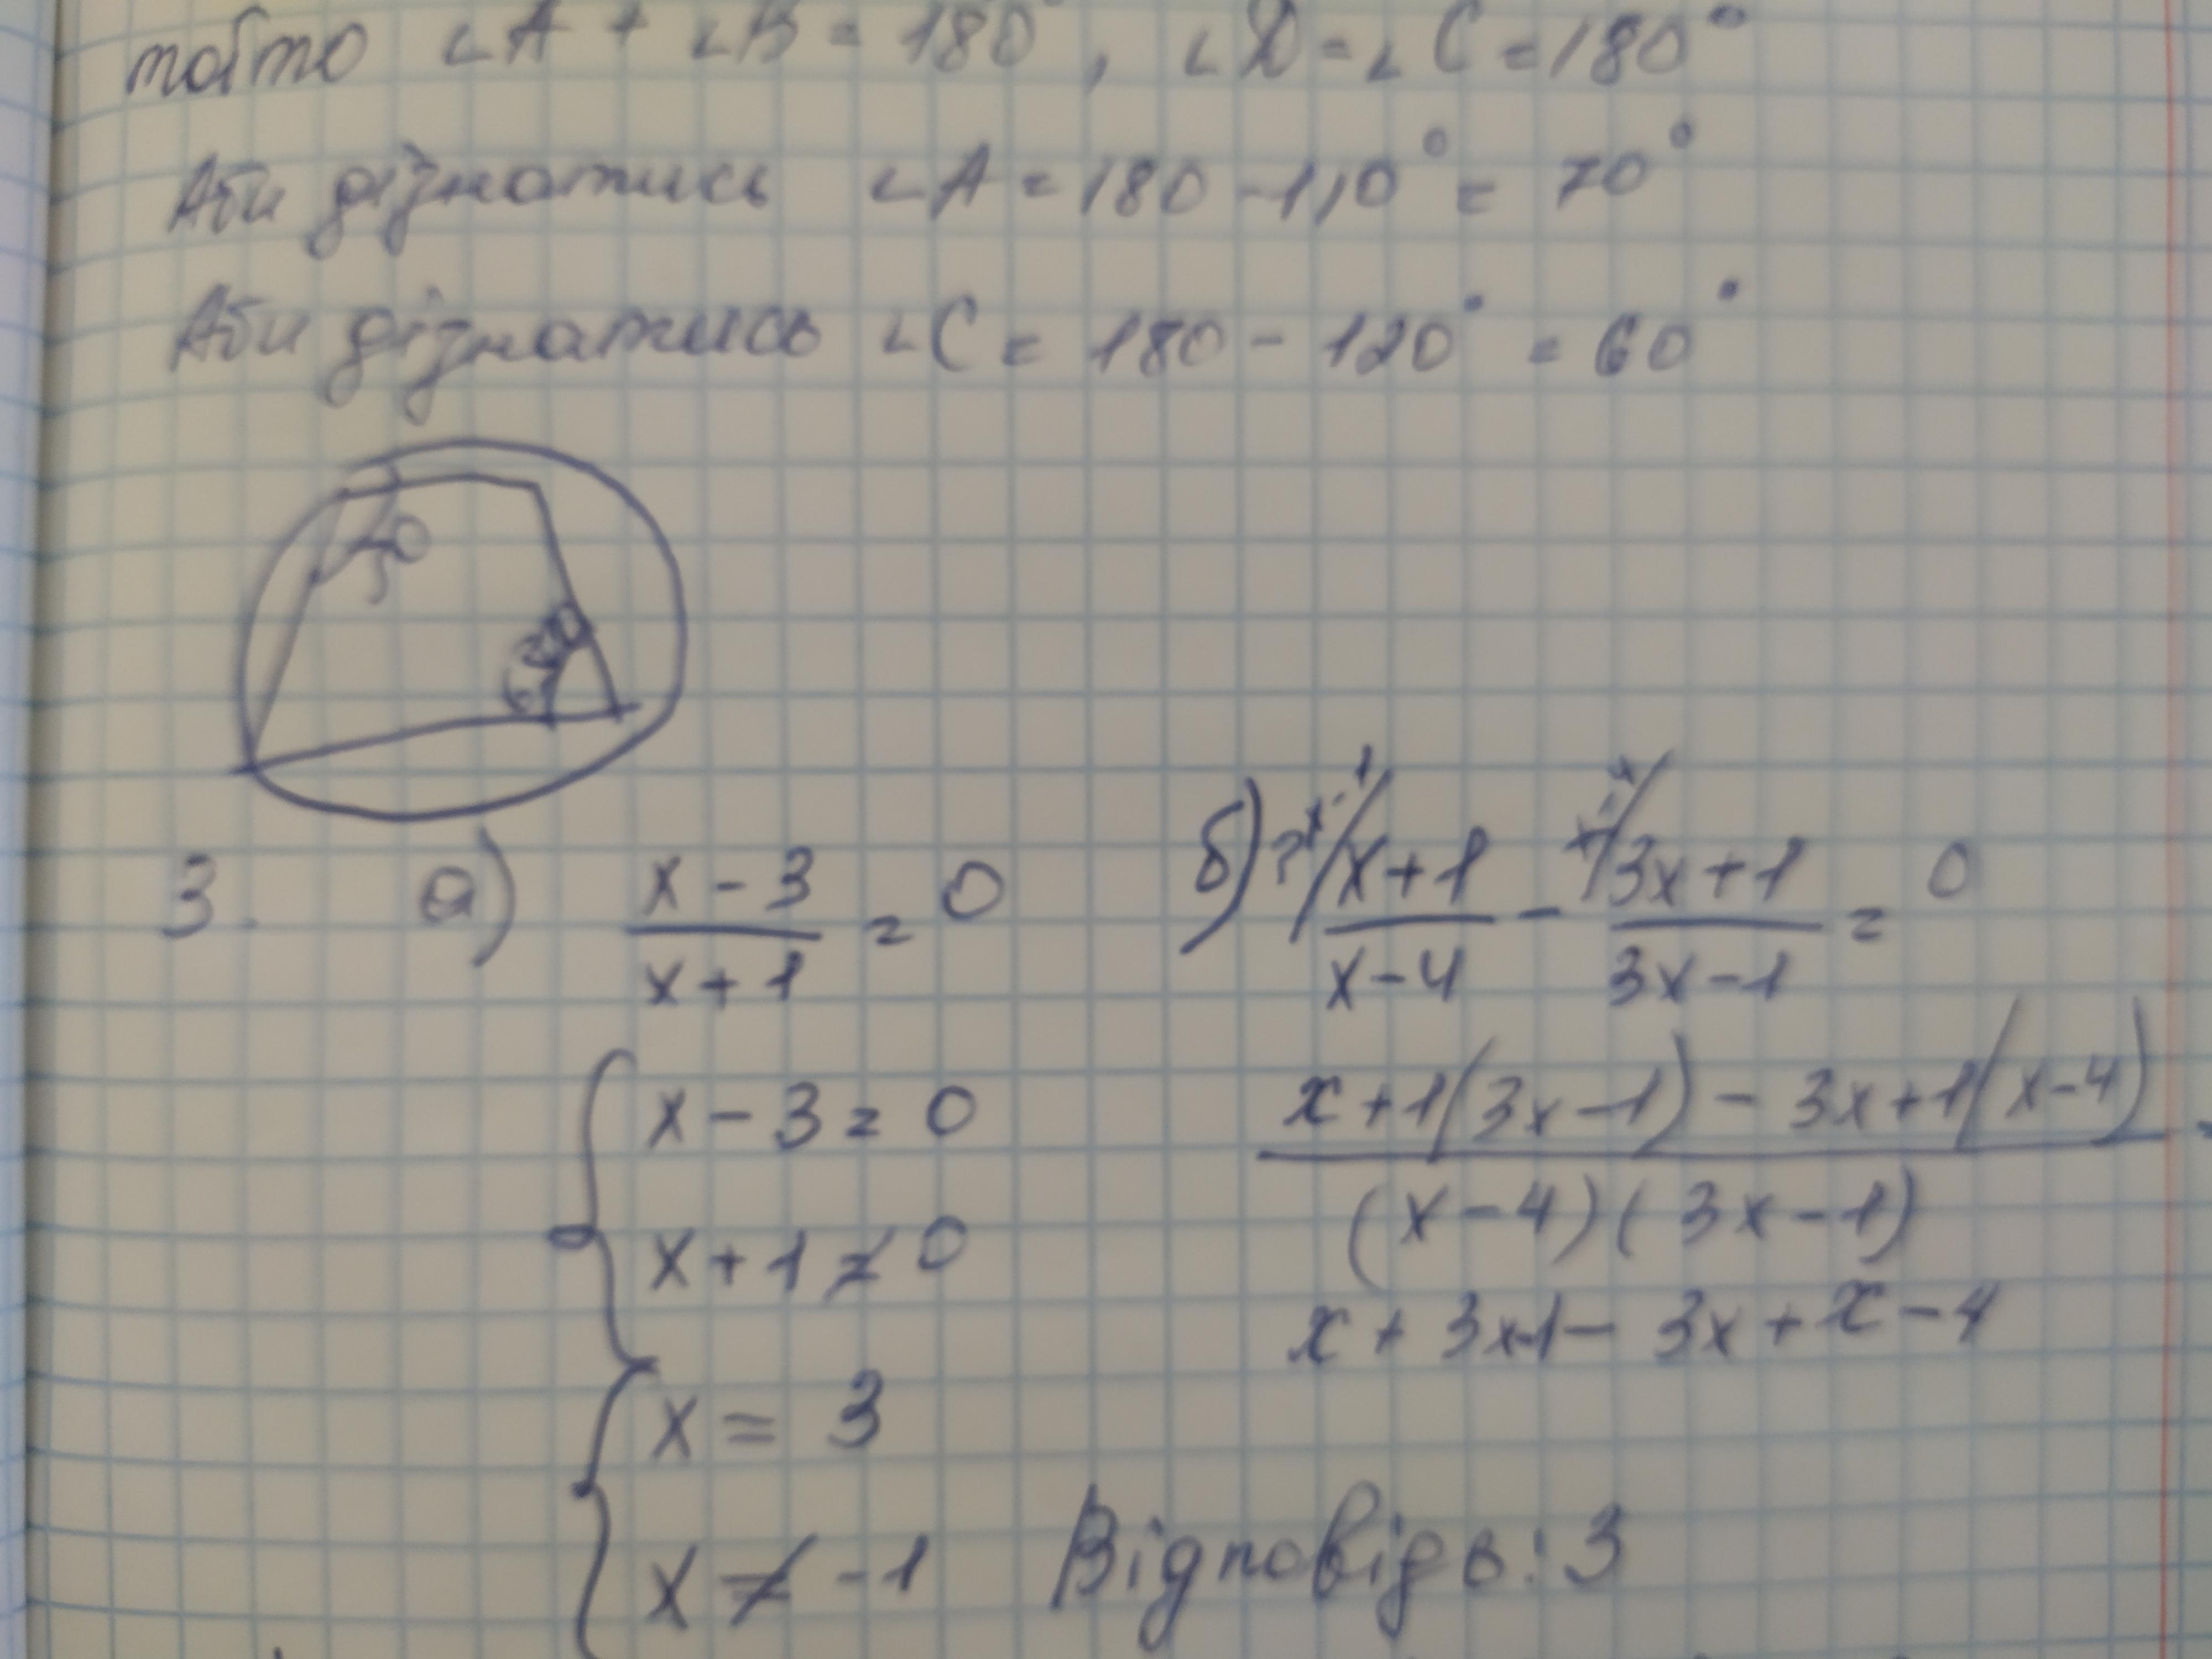 тобто ∠A + ∠B = 180°, ∠D = ∠C = 180°
Аби дізнатись ∠A = 180 - 110° = 70°
Аби дізнатись ∠C = 180 - 120° = 60°
3. а) (x - 3)/(x + 1) = 0
{ x - 3 = 0
x + 1 ≠ 0
{ x = 3
x ≠ -1
Відповідь: 3
б) 3x-1/ (x+1)/(x-4) - x-4/ (3x+1)/(3x-1) = 0
(x+1(3x-1) - 3x+1(x-4))/((x-4)(3x-1))
x + 3x-1 - 3x + x - 4